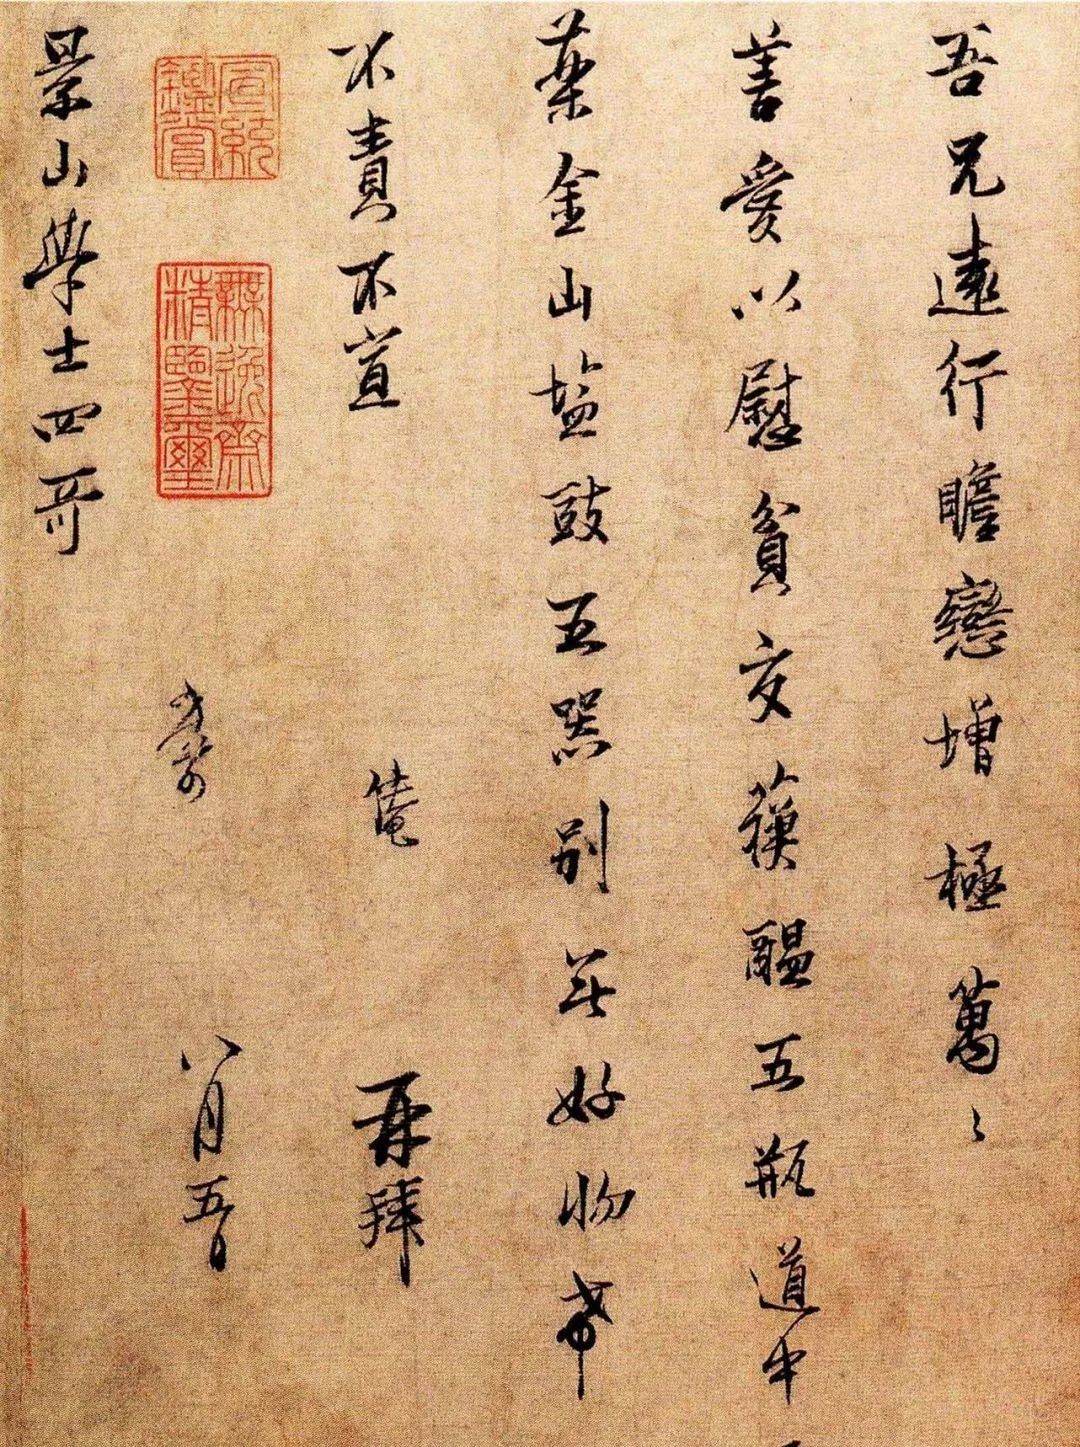 吾兄遠行瞻戀增極萬〻
善愛以慰貧交蘓醖五瓶道中
藥金山塩豉五器別無好物希
不責不宣
襄
再拜
景山學士四哥
八月五日
宣統鑑賞
無逸齋精鑒璽